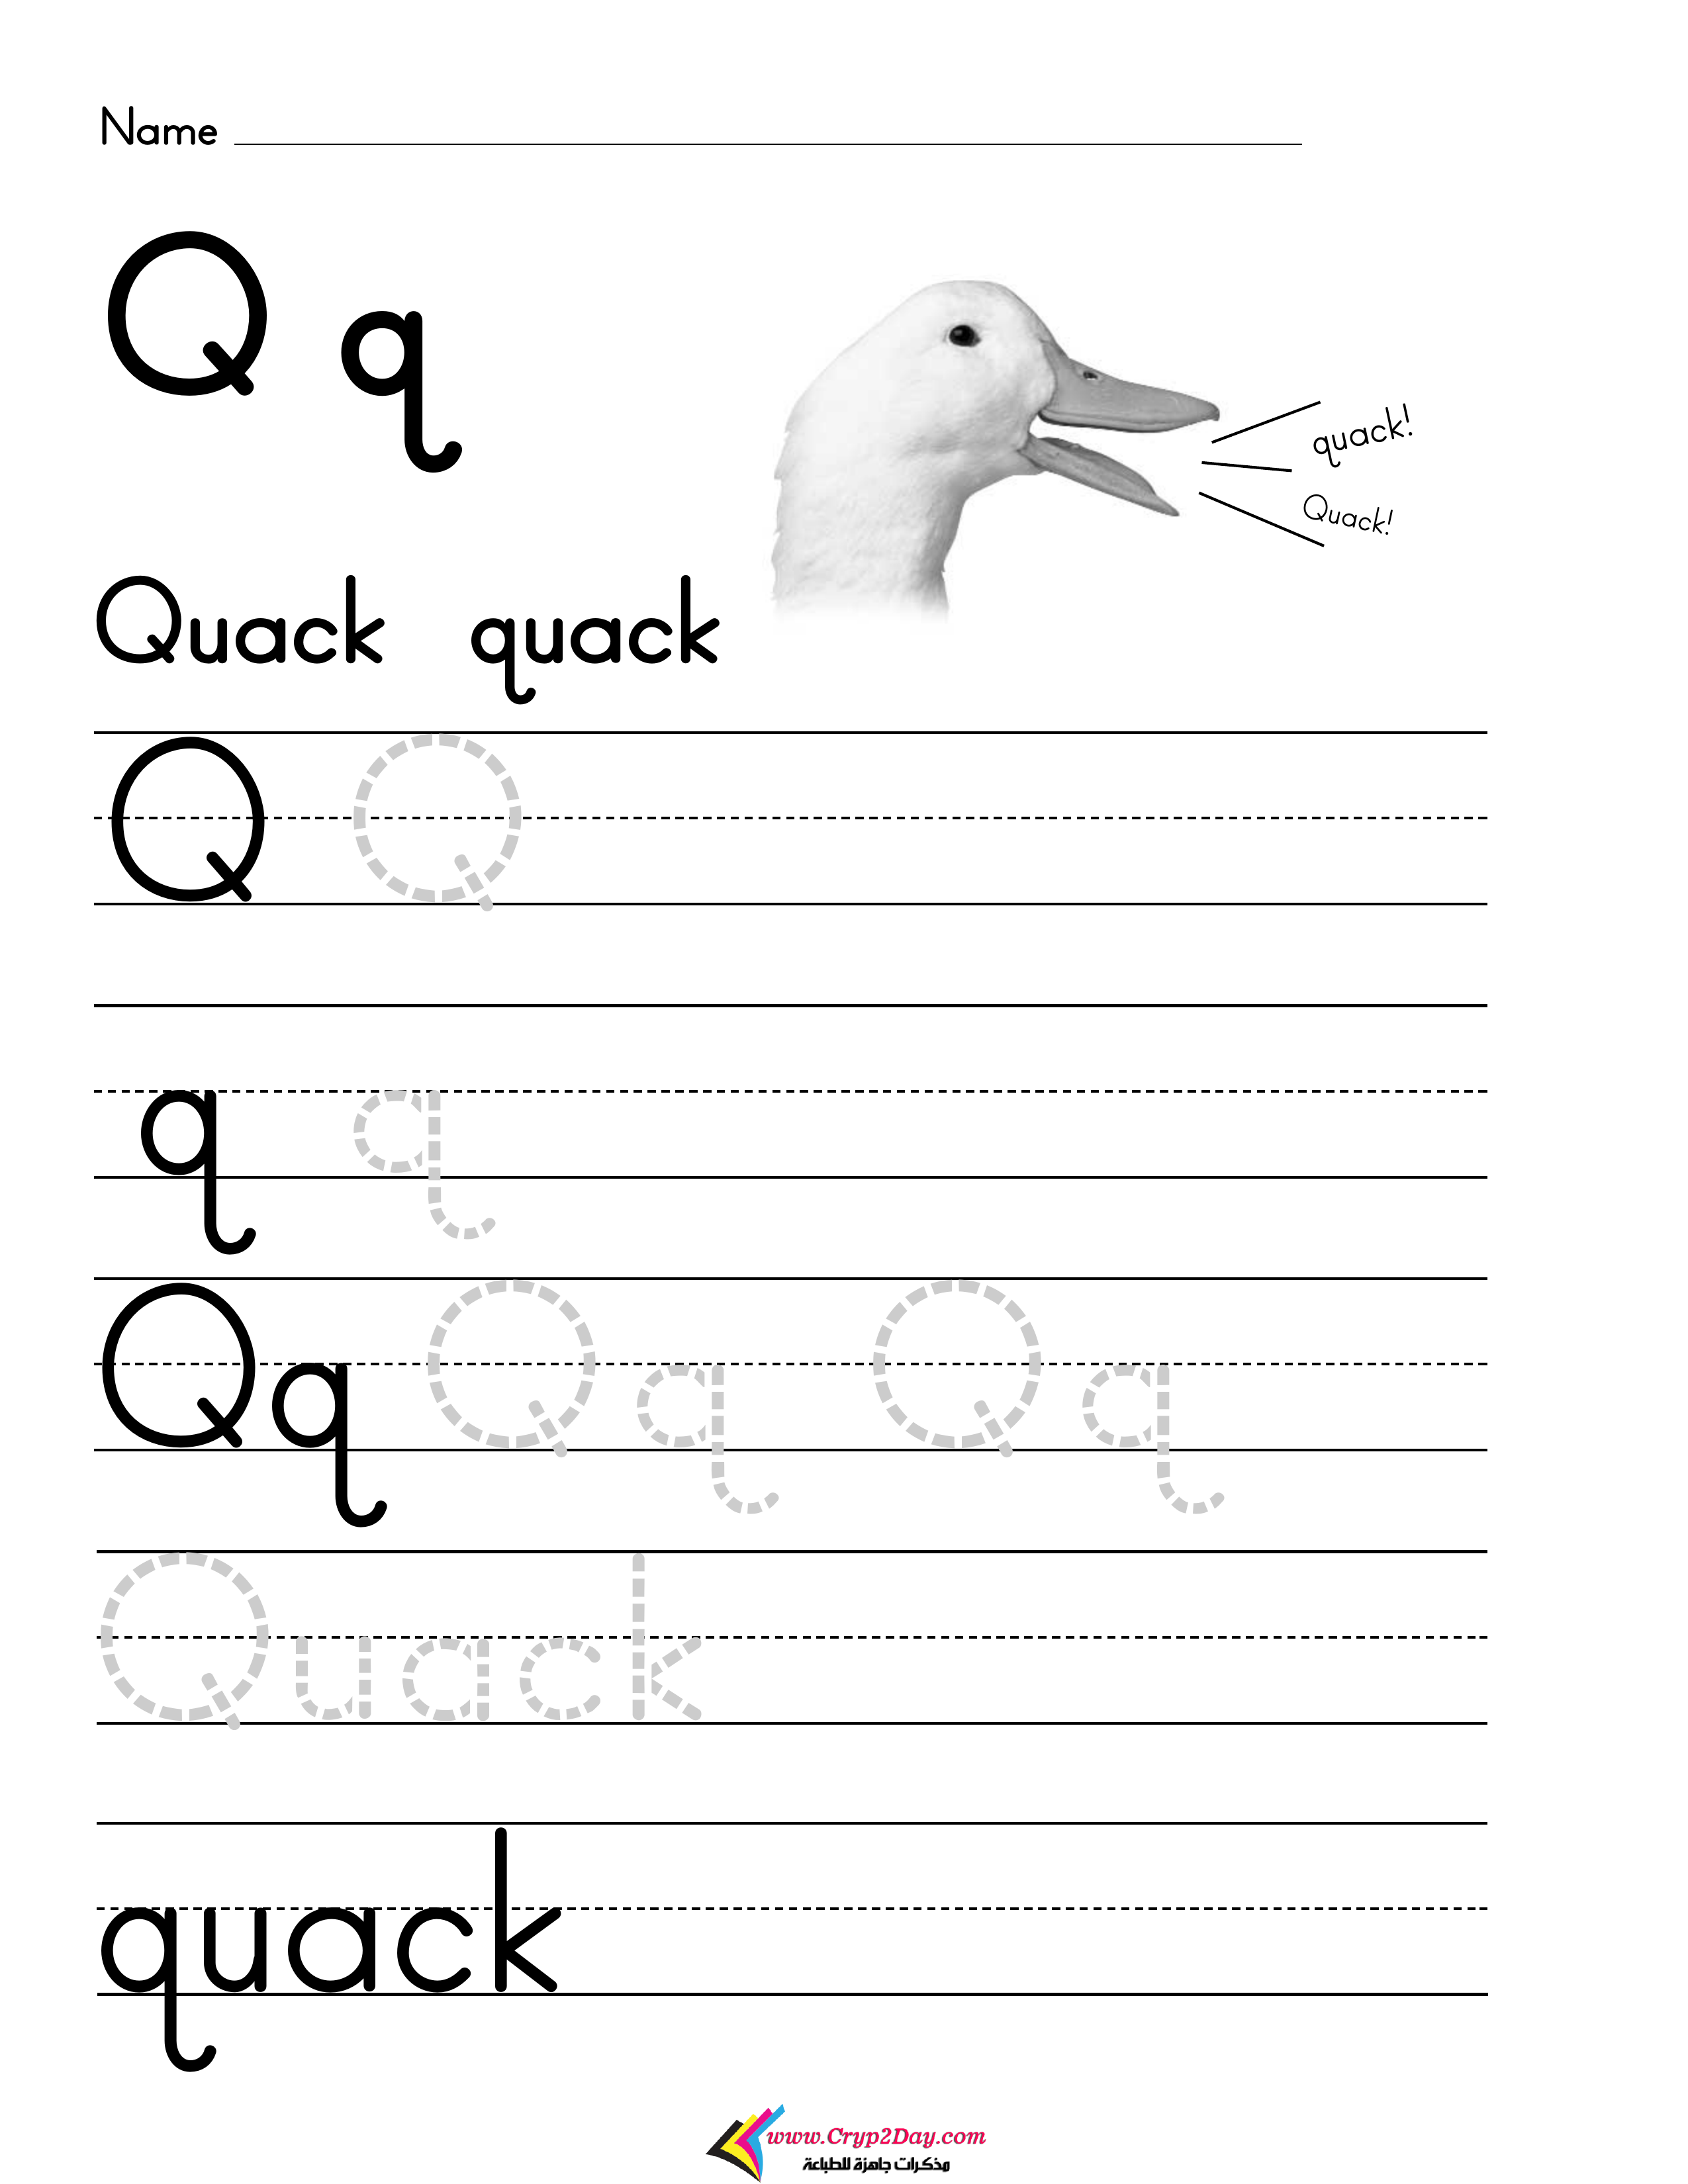 Name
Q q
quack!
Quack!
Quack quack
Q Q
q q
Qq Q q Q q
Quack
quack
www.Cryp2Day.com
مذكرات جاهزة للطباعة